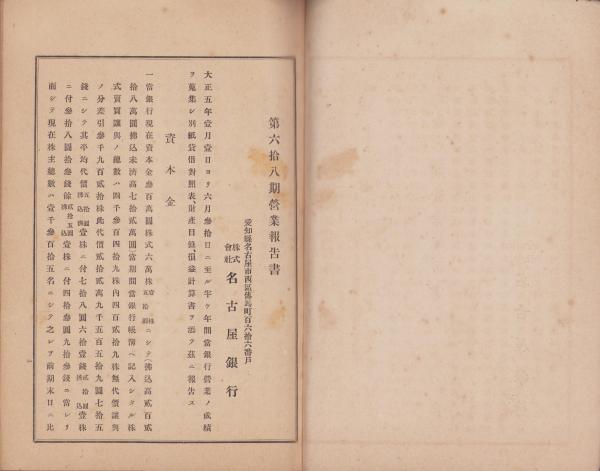 第六拾八期營業報告書
愛知縣名古屋市西區傳馬町百六拾六番戶
株式會社 名古屋銀行
大正五年壹月壹日ヨリ六月參拾日ニ至ル半ケ年間當銀行營業ノ成績
ヲ蒐集シ別紙貸借對照表財產目錄損益計算書ヲ添ヘ茲ニ報告ス
資本金
一當銀行現在資本金參百萬圓株式六萬株壹株五拾圓ニシテ拂込高貳百貳
拾八萬圓拂込未濟高七拾貳萬圓當期間當銀行帳簿ヘ記入シタル株
式賣買讓與ノ總數ハ四千參百四拾九株內四百貳拾九株無代價讓與
ノ分差引參千九百貳拾株此代價貳拾貳萬九千五百五拾九圓七拾五
錢ニシテ其平均代價五拾圓拂込濟壹株ニ付七拾八圓六拾壹錢貳拾圓拂込壹株
ニ付參拾八圓拾參錢餘貳拾五圓拂込壹株ニ付四拾參圓九拾參錢ニ當レリ
而シテ現在株主總數ハ壹千參百拾五名ニシテ之レヲ前期末日ニ比